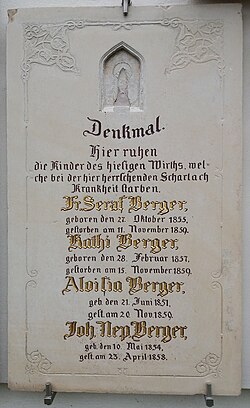 Denkmal.
Hier ruhen
die Kinder des hiesigen Wirths, wel-
che bei der hier herrschenden Scharlach
Krankheit starben.
Fr. Seraf Berger,
geboren den 27. Oktober 1855,
gestorben am 11. November 1859.
Kathi Berger,
geboren den 28. Februar 1857.
gestorben am 15. November 1859.
Aloisia Berger,
geb den 21. Juni 1851.
gest am 20 Nov. 1859.
Joh Nep Berger,
geb. den 10. Mai 1854,
gest. am 23. April 1858.